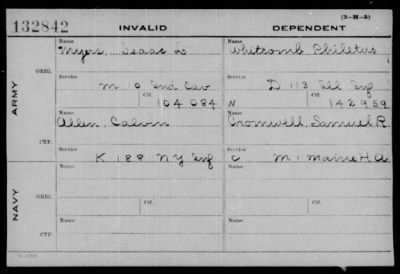 (3-H-3)
132842 INVALID DEPENDENT
Name Name
Myers Isaac L Whitcomb Philetus
ORIG. Service Service
M 10 Ind Cav D 113 Ill Inf
Ctf. Ctf.
104084 N 142959
ARMY
Name Name
Allen Calvin Cromwell Samuel R
CTF. Service Service
K 188 NY Inf C M 1 Maine H.A.
Name Name
ORIG. Service Service
Ctf. Ctf.
NAVY
Name Name
CTF. Service Service